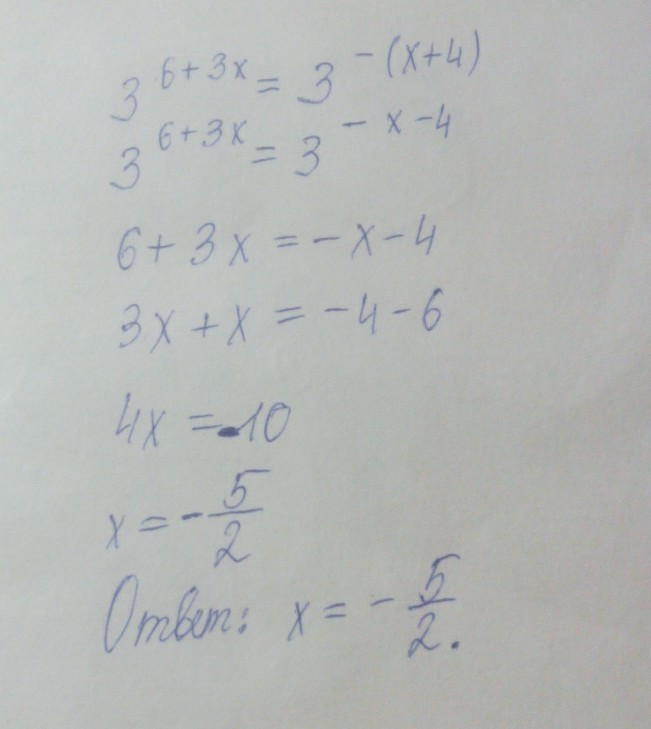 3^{6+3x} = 3^{-(x+4)}
3^{6+3x} = 3^{-x-4}
6+3x = -x-4
3x+x = -4-6
4x = -10
x = -\frac{5}{2}
Ответ: x = -\frac{5}{2}.